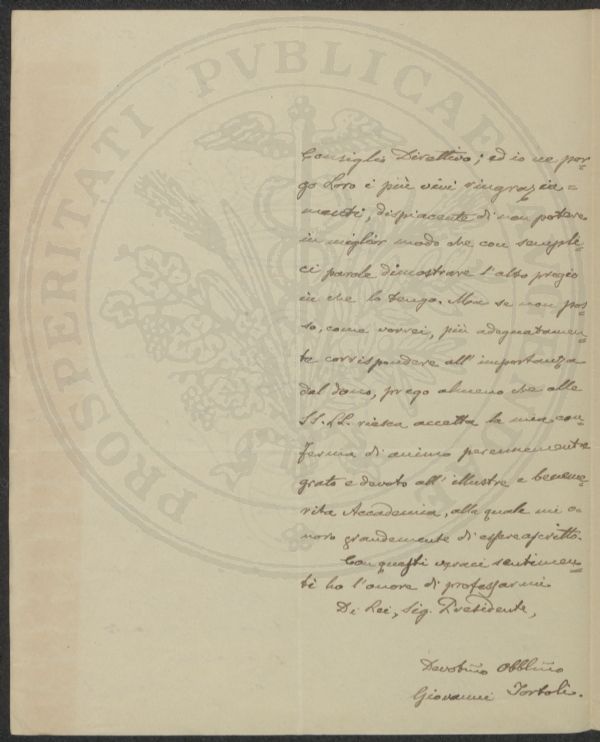 PROSPERITATI PVBLICAE
Consiglio Direttivo; ed io ne por-
go Loro i più vivi ringrazia=
menti, dispiacente di non potere
in miglior modo che con sempli-
ci parole dimostrare l'alto pregio
in che lo tengo. Ma se non pos-
so, come vorrei, più adeguatamen-
te corrispondere all'importanza
del dono, prego almeno che alle
SS. LL. riesca accetta la mia con-
ferma di animo perennemente
grato e devoto all'illustre e beneme-
rita Accademia, alla quale mi o-
noro grandemente di essere ascritto.
Con questi veraci sentimen-
ti ho l'onore di professarmi
Di Lei, Sig. Presidente,
Devotm̃o Obblm̃o
Giovanni Tortoli.